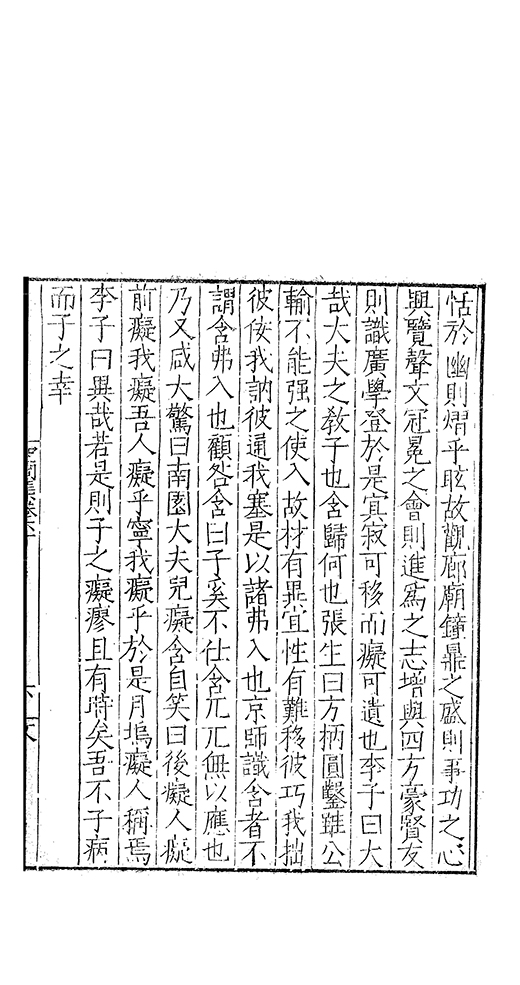 恬於幽則熠乎眩故觀廊廟鐘鼎之盛則事功之心
興覽聲文冠冕之會則進爲之志增與四方豪賢友
則識廣學登於是冥寂可移而癡可遺也李子曰大
哉大夫之敎子也含歸何也張生曰方枘圓鑿雖公
輸不能强之使入故材有異宜性有難移彼巧我拙
彼佞我訥彼通我塞是以諸弗入也京師識含者不
謂含弗入也顧咎含曰子奚不仕含兀兀無以應也
乃又咸大驚曰南園大夫兒癡含自笑曰後癡人癡
前癡我癡吾人癡乎寧我癡乎於是月塢癡人稱焉
李子曰異哉若是則子之癡瘳且有時矣吾不子病
而子之幸
空同集卷